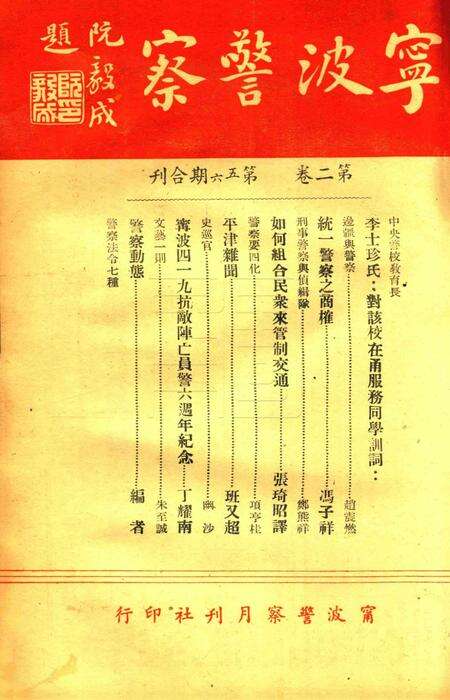 寧波警察
阮毅成
題
第二卷 第五六期合刊
中央警校教育長
李士珍氏:對該校在甬服務同學訓詞:
邊疆與警察 趙震燃
統一警察之商榷 馮子祥
刑事警察與偵緝隊 鄭熊祥
如何組合民衆來管制交通 張琦昭譯
警察要四化 項亨桂
平津雜聞 班又超
史巡官 幽沙
甯波四一九抗敵陣亡員警六週年紀念 丁耀南
文藝一則 朱至誠
警察動態 編者
警察法令七種
甯波警察月刊社印行